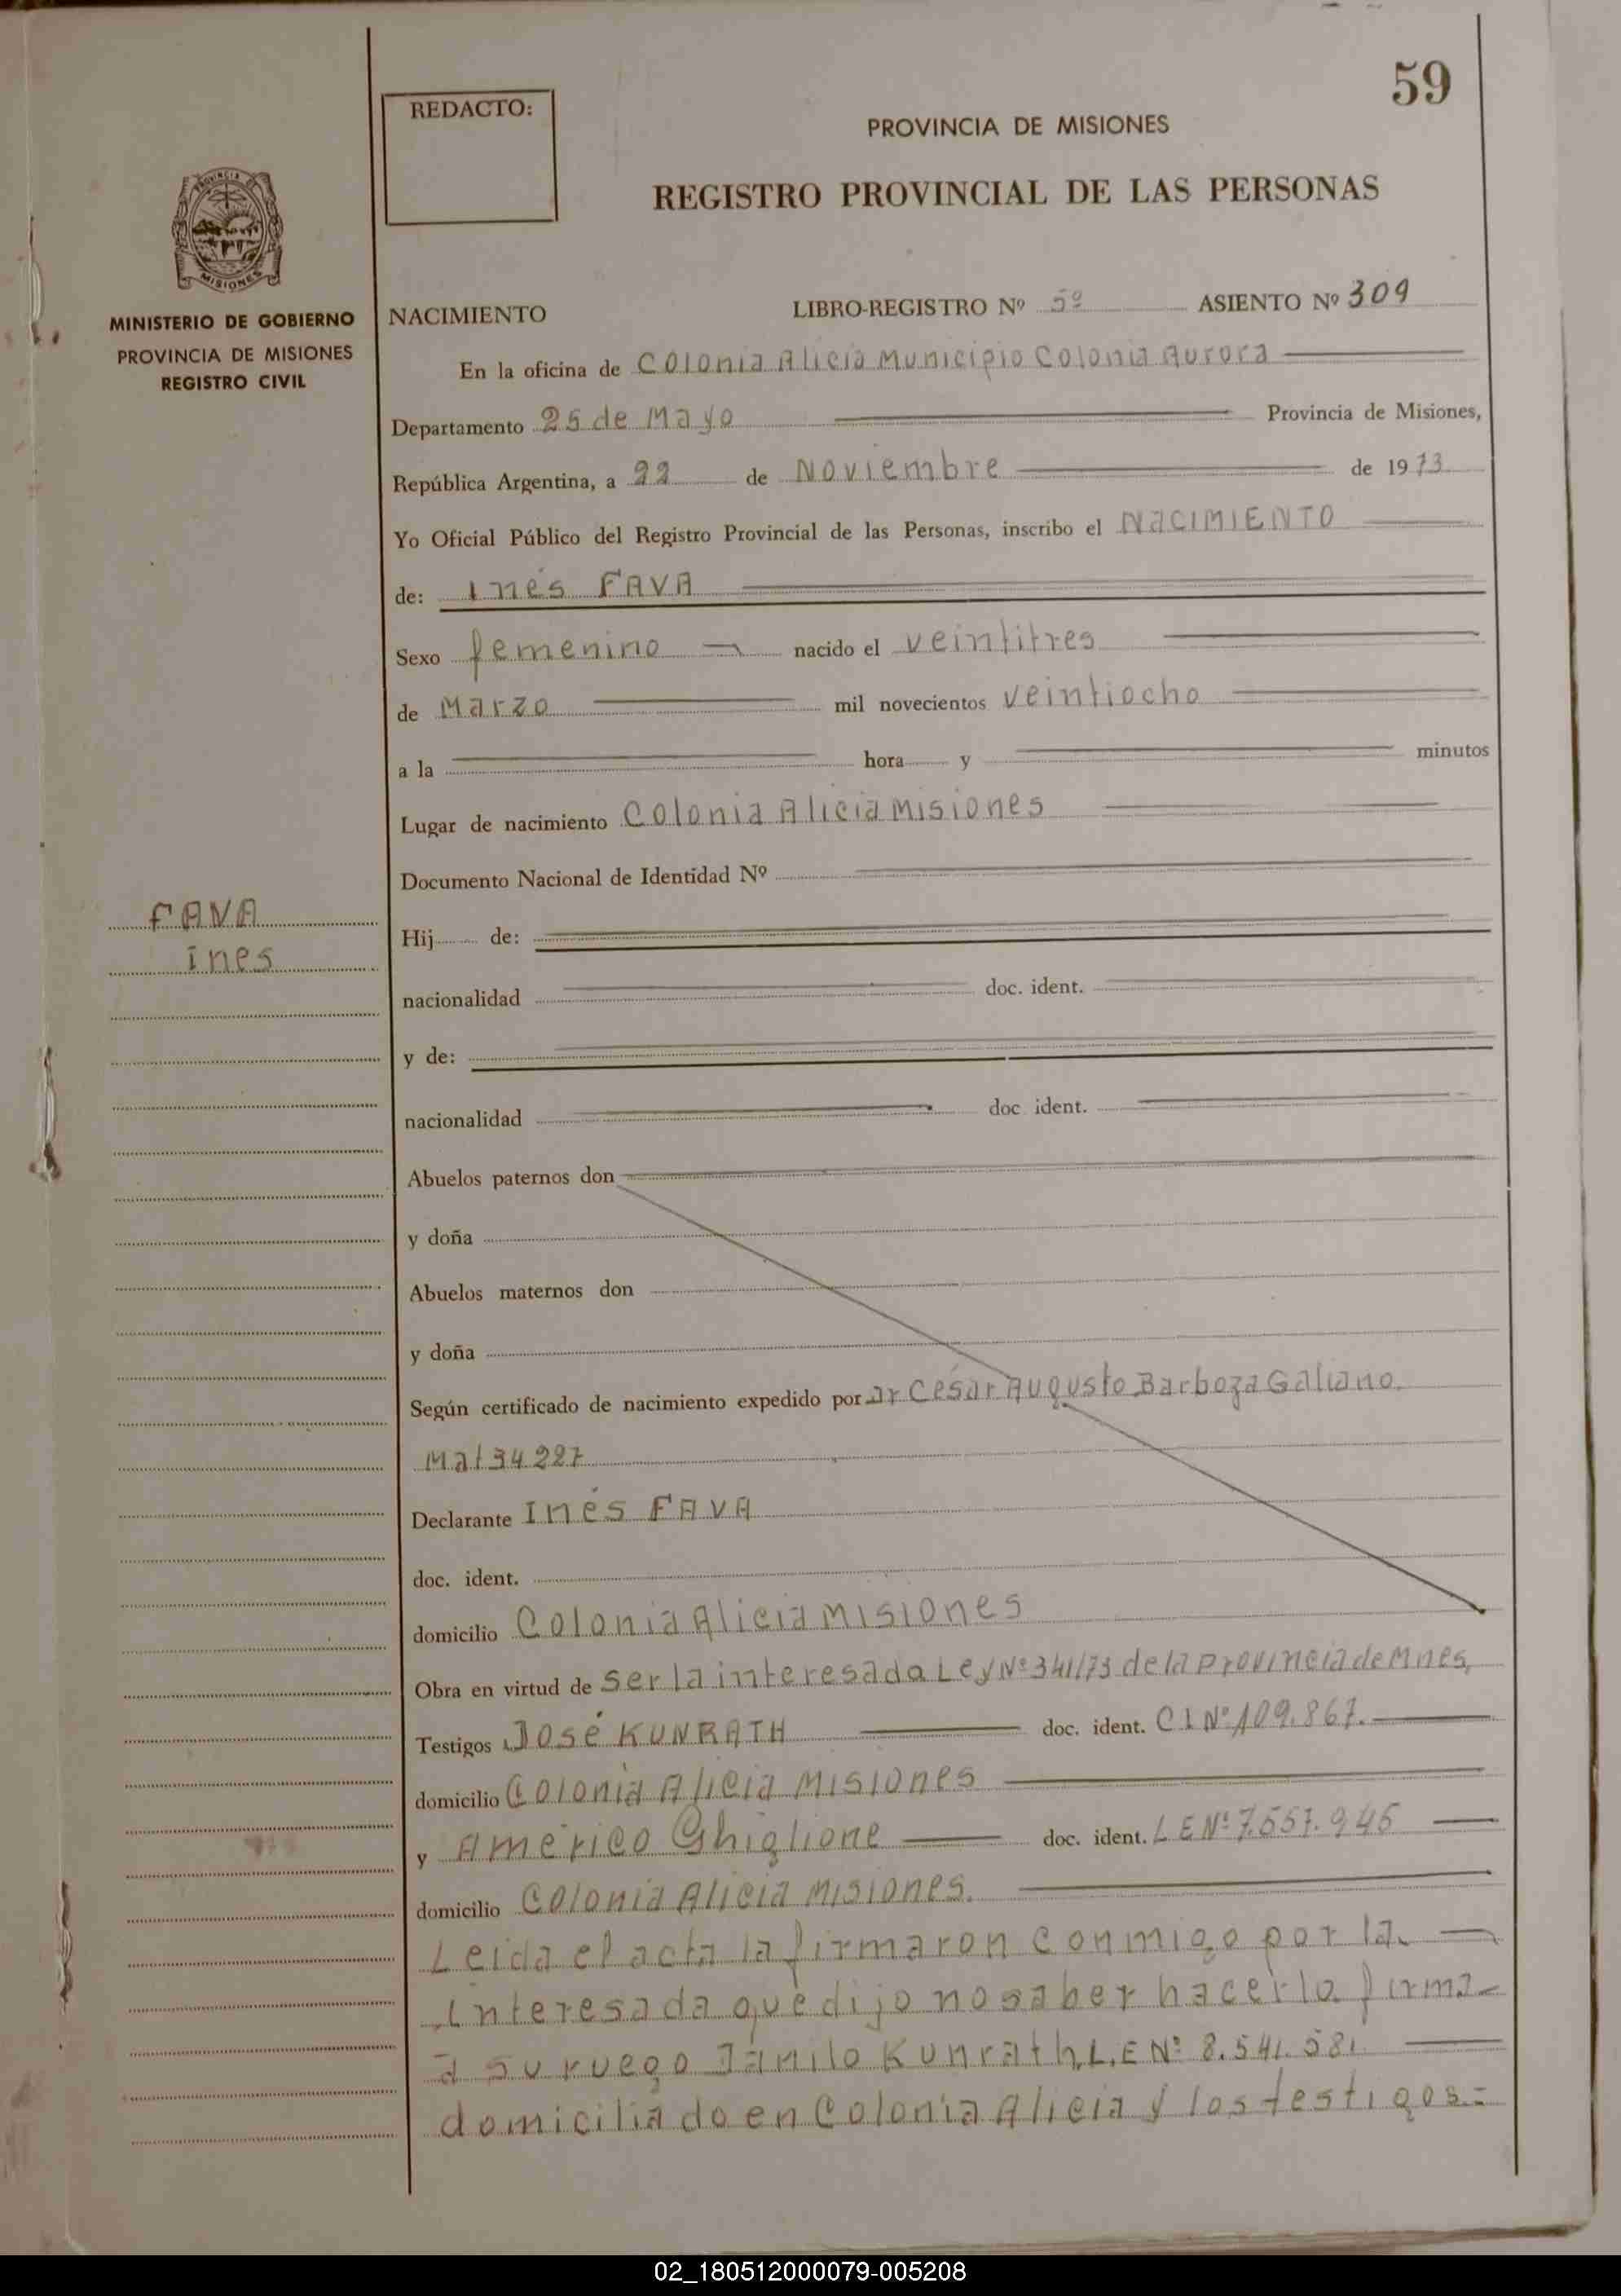 59
REDACTO:
PROVINCIA DE MISIONES
REGISTRO PROVINCIAL DE LAS PERSONAS
PROVINCIA DE
MISIONES
MINISTERIO DE GOBIERNO
PROVINCIA DE MISIONES
REGISTRO CIVIL
NACIMIENTO LIBRO-REGISTRO Nº 5º ASIENTO Nº 309
En la oficina de Colonia Alicia Municipio Colonia Aurora
Departamento 25 de Mayo Provincia de Misiones,
República Argentina, a 22 de Noviembre de 1973
Yo Oficial Público del Registro Provincial de las Personas, inscribo el NACIMIENTO
de: Inés FAVA
Sexo femenino nacido el veintitres
de Marzo mil novecientos veintiocho
a la hora y minutos
Lugar de nacimiento Colonia Alicia Misiones
Documento Nacional de Identidad Nº
FAVA
Ines
Hij de:
nacionalidad doc. ident.
y de:
nacionalidad doc. ident.
Abuelos paternos don
y doña
Abuelos maternos don
y doña
Según certificado de nacimiento expedido por Dr César Augusto Barboza Galiano.
Mat 34227
Declarante Inés FAVA
doc. ident.
domicilio Colonia Alicia Misiones
Obra en virtud de ser la interesada Ley Nº 341/73 de la Provincia de Mnes,
Testigos José KUNRATH doc. ident. C I Nº 109.867.
domicilio Colonia Alicia Misiones
y Américo Ghiglione doc. ident. L E Nº 7.557.945
domicilio Colonia Alicia Misiones.
Leida el acta la firmaron conmigo por la
interesada que dijo no saber hacerlo firma
a su ruego Danilo Kunrath L.E Nº 8.541.581.
domiciliado en Colonia Alicia y los testigos.=
02_180512000079-005208